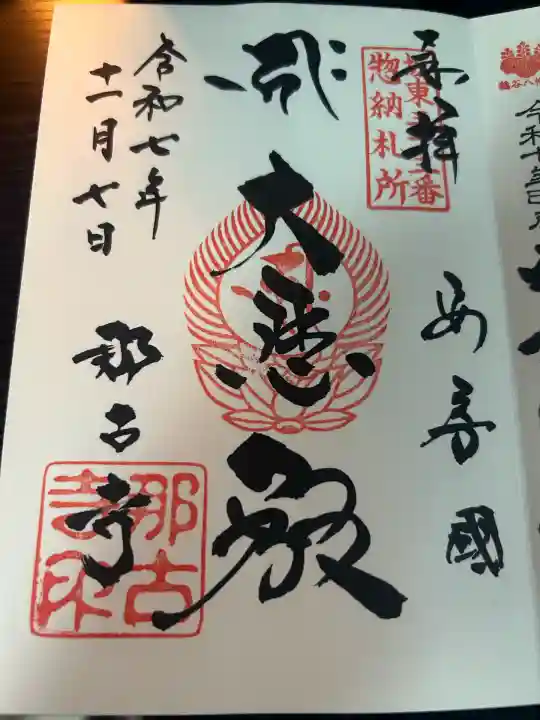 奉拝
坂東三十三番
惣納札所
安房國
大悲殿
令和七年
十一月七日
那古寺
那古
寺印